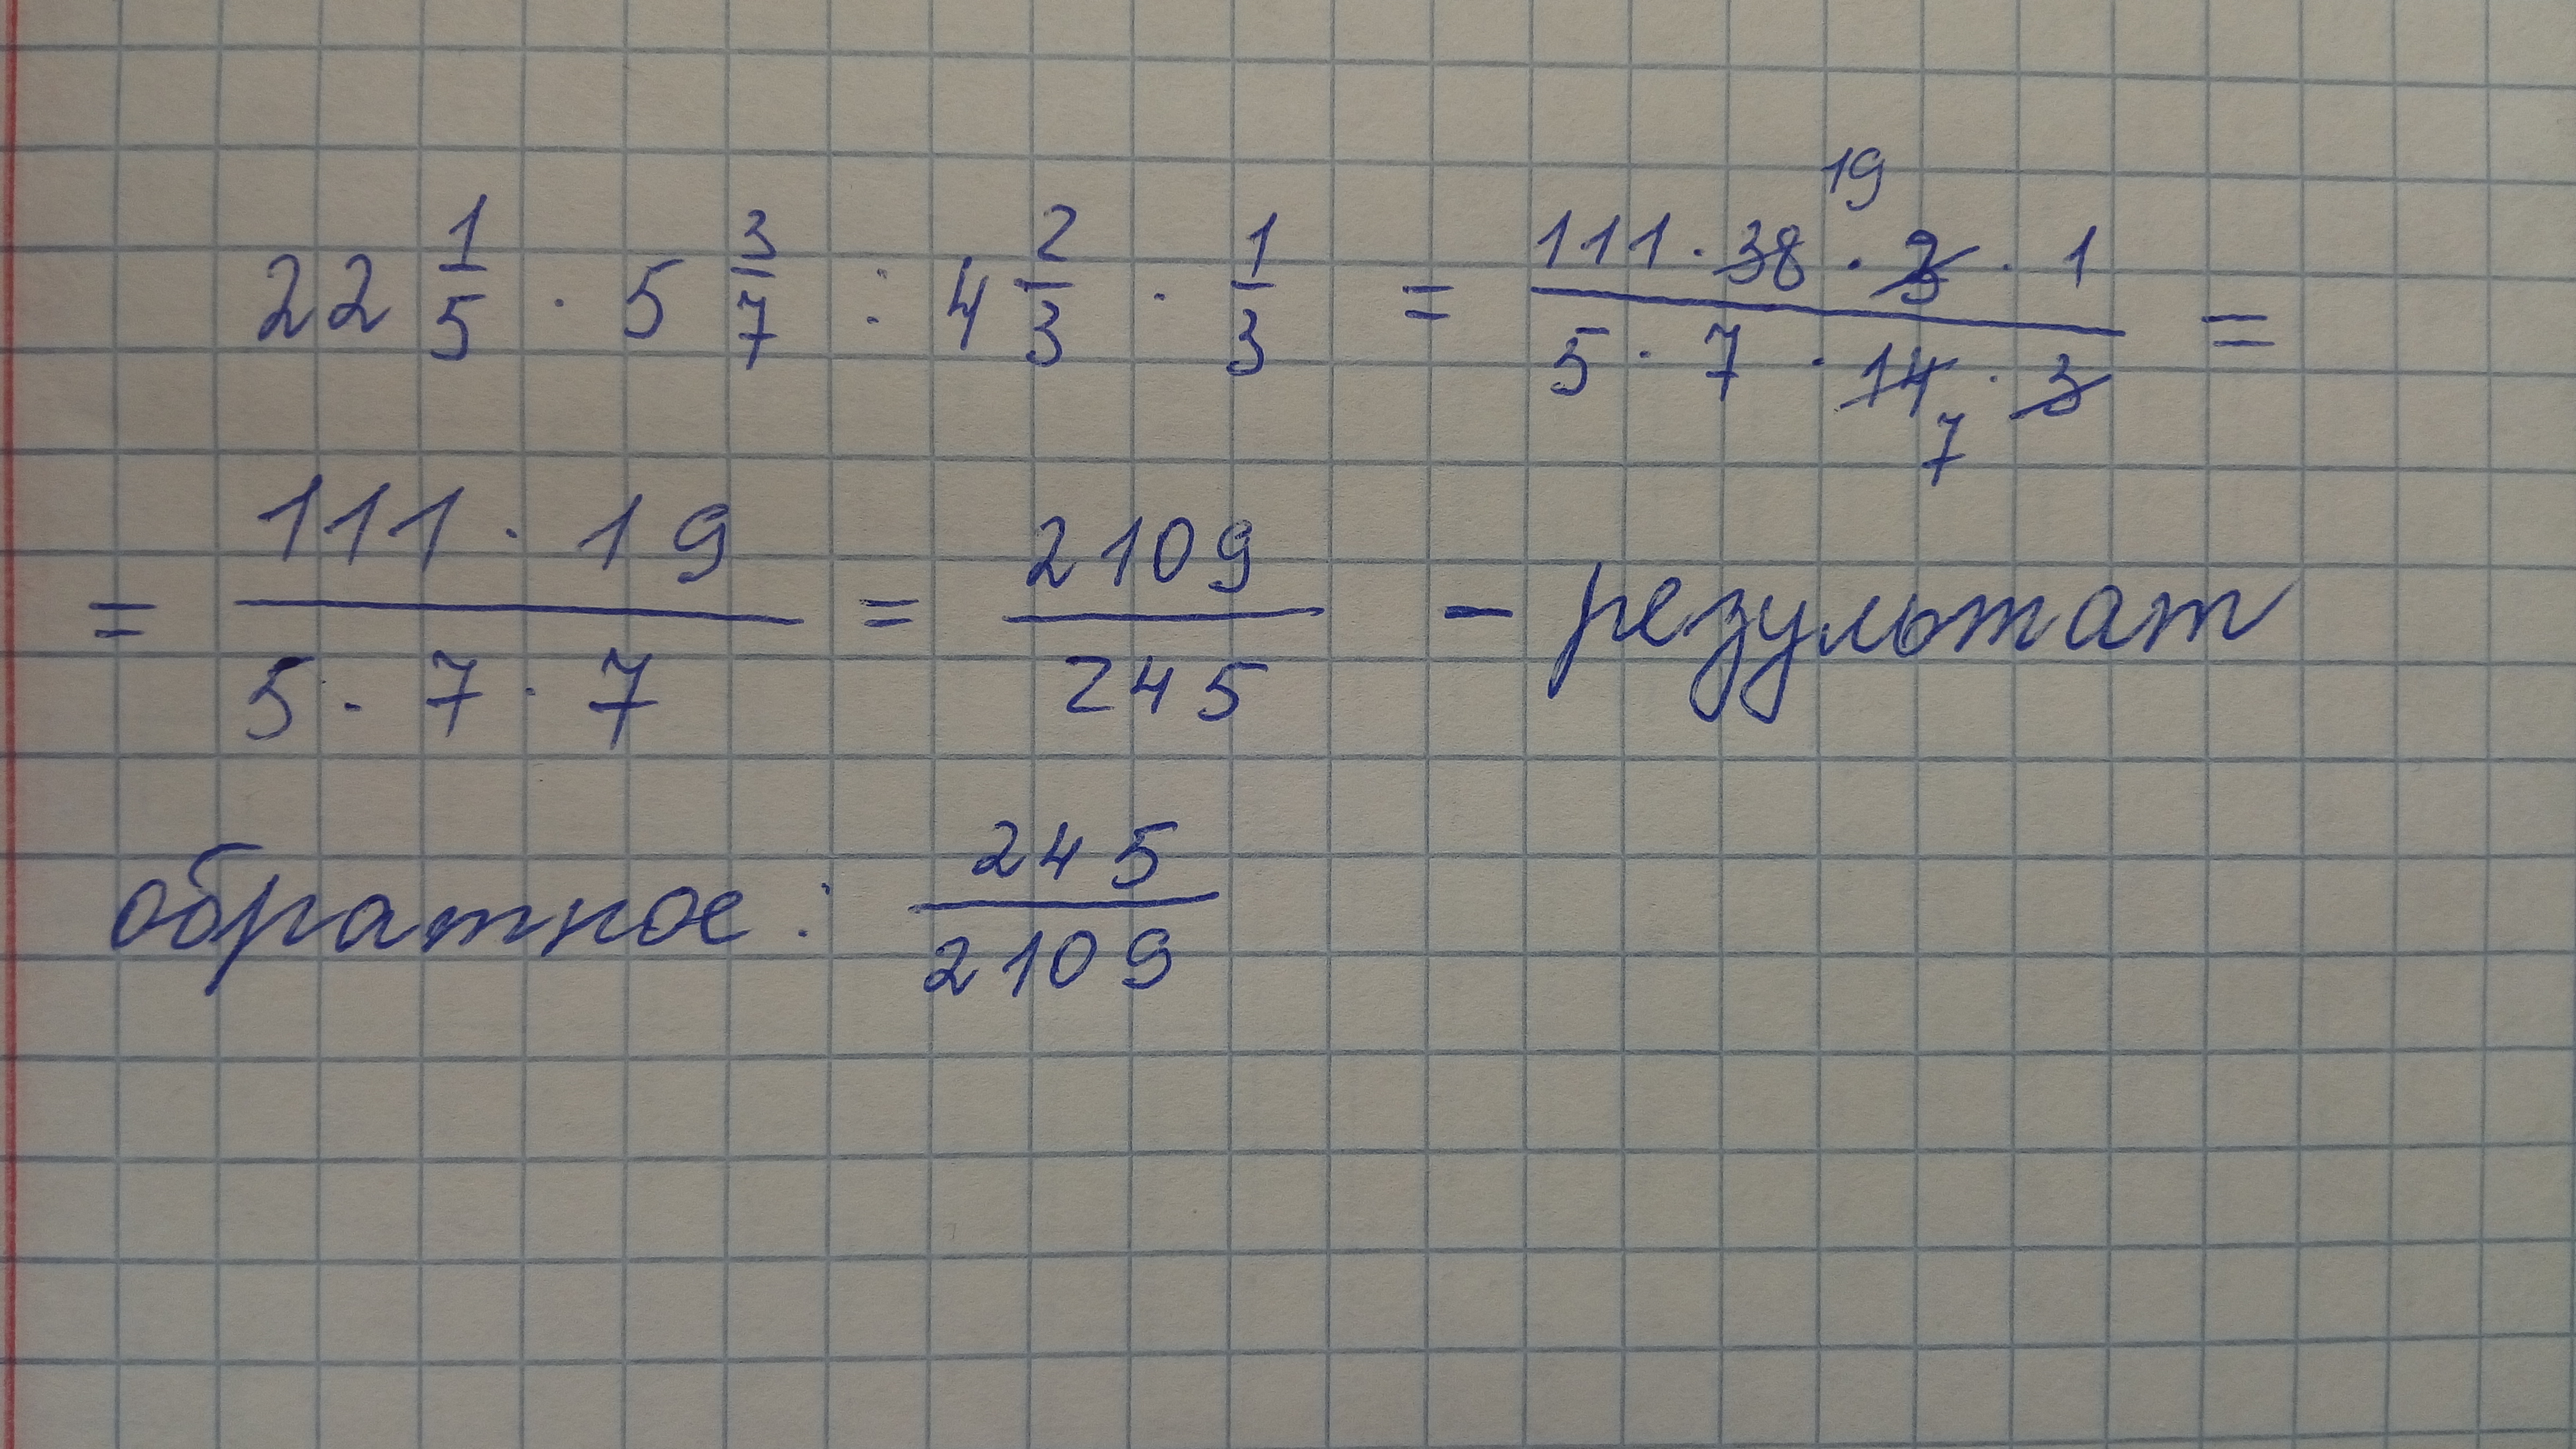 22 1/5 · 5 3/7 : 4 2/3 · 1/3 = (111 · 38 · 3 · 1)/(5 · 7 · 14 · 3) = 19 7
= (111 · 19)/(5 · 7 · 7) = 2109/245 - результат
обратное: 245/2109